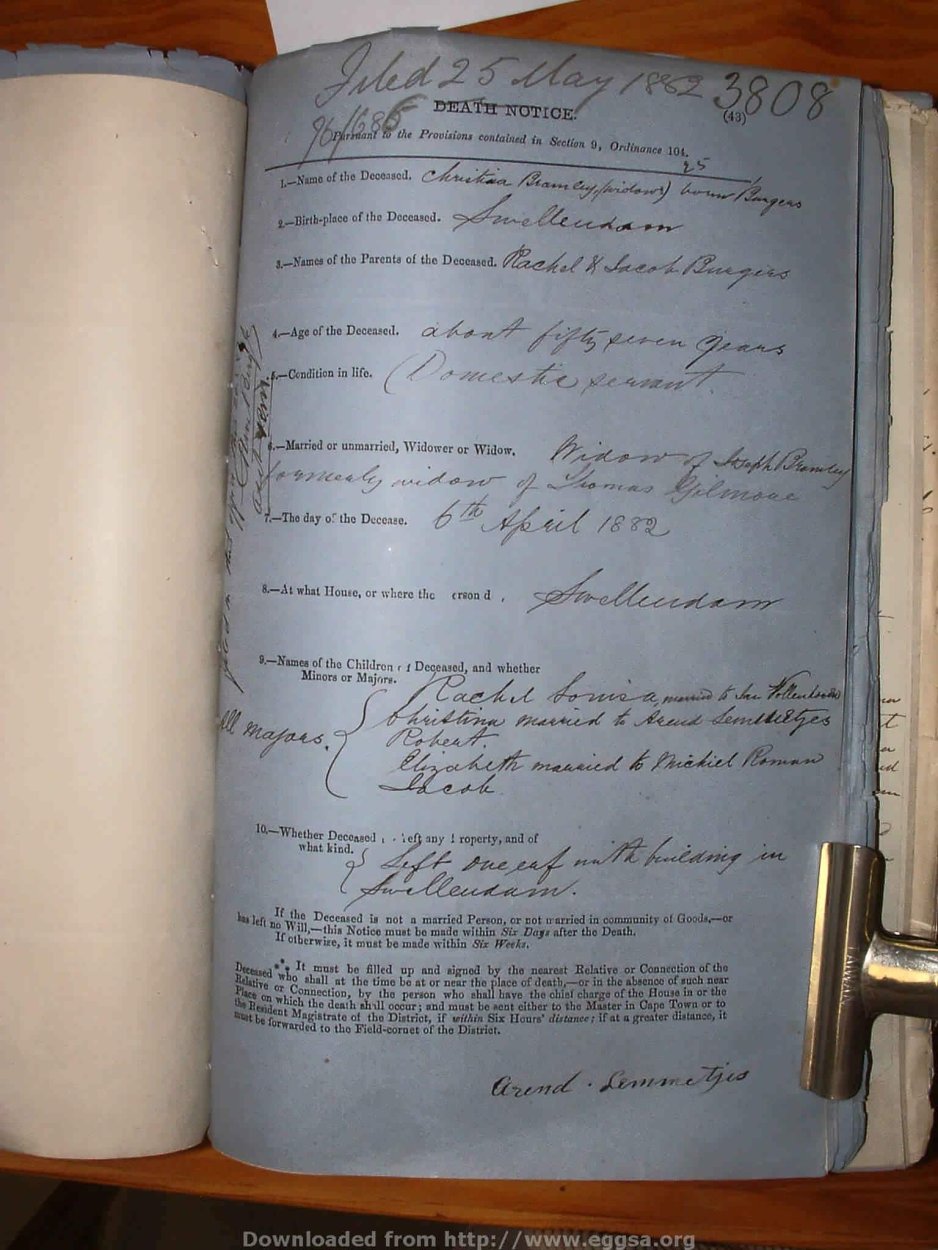 Filed 25 May 1882 3808
DEATH NOTICE. (43)
Pursuant to the Provisions contained in Section 9, Ordinance 104.
25
1.—Name of the Deceased. Christina Bramley (widow) born Burgers
2.—Birth-place of the Deceased. Swellendam
3.—Names of the Parents of the Deceased. Rachel & Jacob Burgers
4.—Age of the Deceased. about fifty seven years
5.—Condition in life. (Domestic servant
6.—Married or unmarried, Widower or Widow. Widow of Joseph Bramley
formerly widow of Thomas Gilmore
7.—The day of the Decease. 6th April 1882
8.—At what House, or where the erson d . Swellendam
9.—Names of the Children of Deceased, and whether
Minors or Majors.
Rachel Louisa, married to Jan
Christina married to Arend Lemmetjes
All Majors. Robert.
Elizabeth married to Michiel Roman
Jacob
10.—Whether Deceased left any Property, and of
what kind.
Left one erf with building in
Swellendam.
If the Deceased is not a married Person, or not married in community of Goods,—or
has left no Will,—this Notice must be made within Six Days after the Death.
If otherwise, it must be made within Six Weeks.
⁂ It must be filled up and signed by the nearest Relative or Connection of the
Deceased who shall at the time be at or near the place of death,—or in the absence of such near
Relative or Connection, by the person who shall have the chief charge of the House in or the
Place on which the death shall occur; and must be sent either to the Master in Cape Town or to
the Resident Magistrate of the District, if within Six Hours' distance; if at a greater distance, it
must be forwarded to the Field-cornet of the District.
Arend . Lemmetjes
Downloaded from http://www.eggsa.org